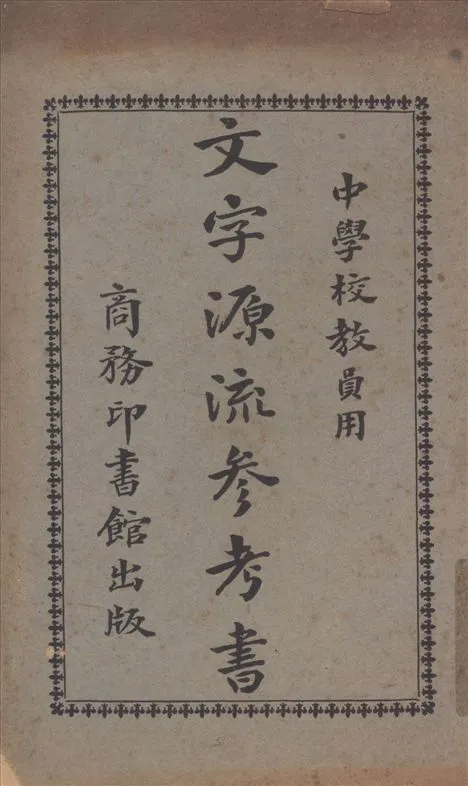 中學校教員用
文字源流參考書
商務印書館出版